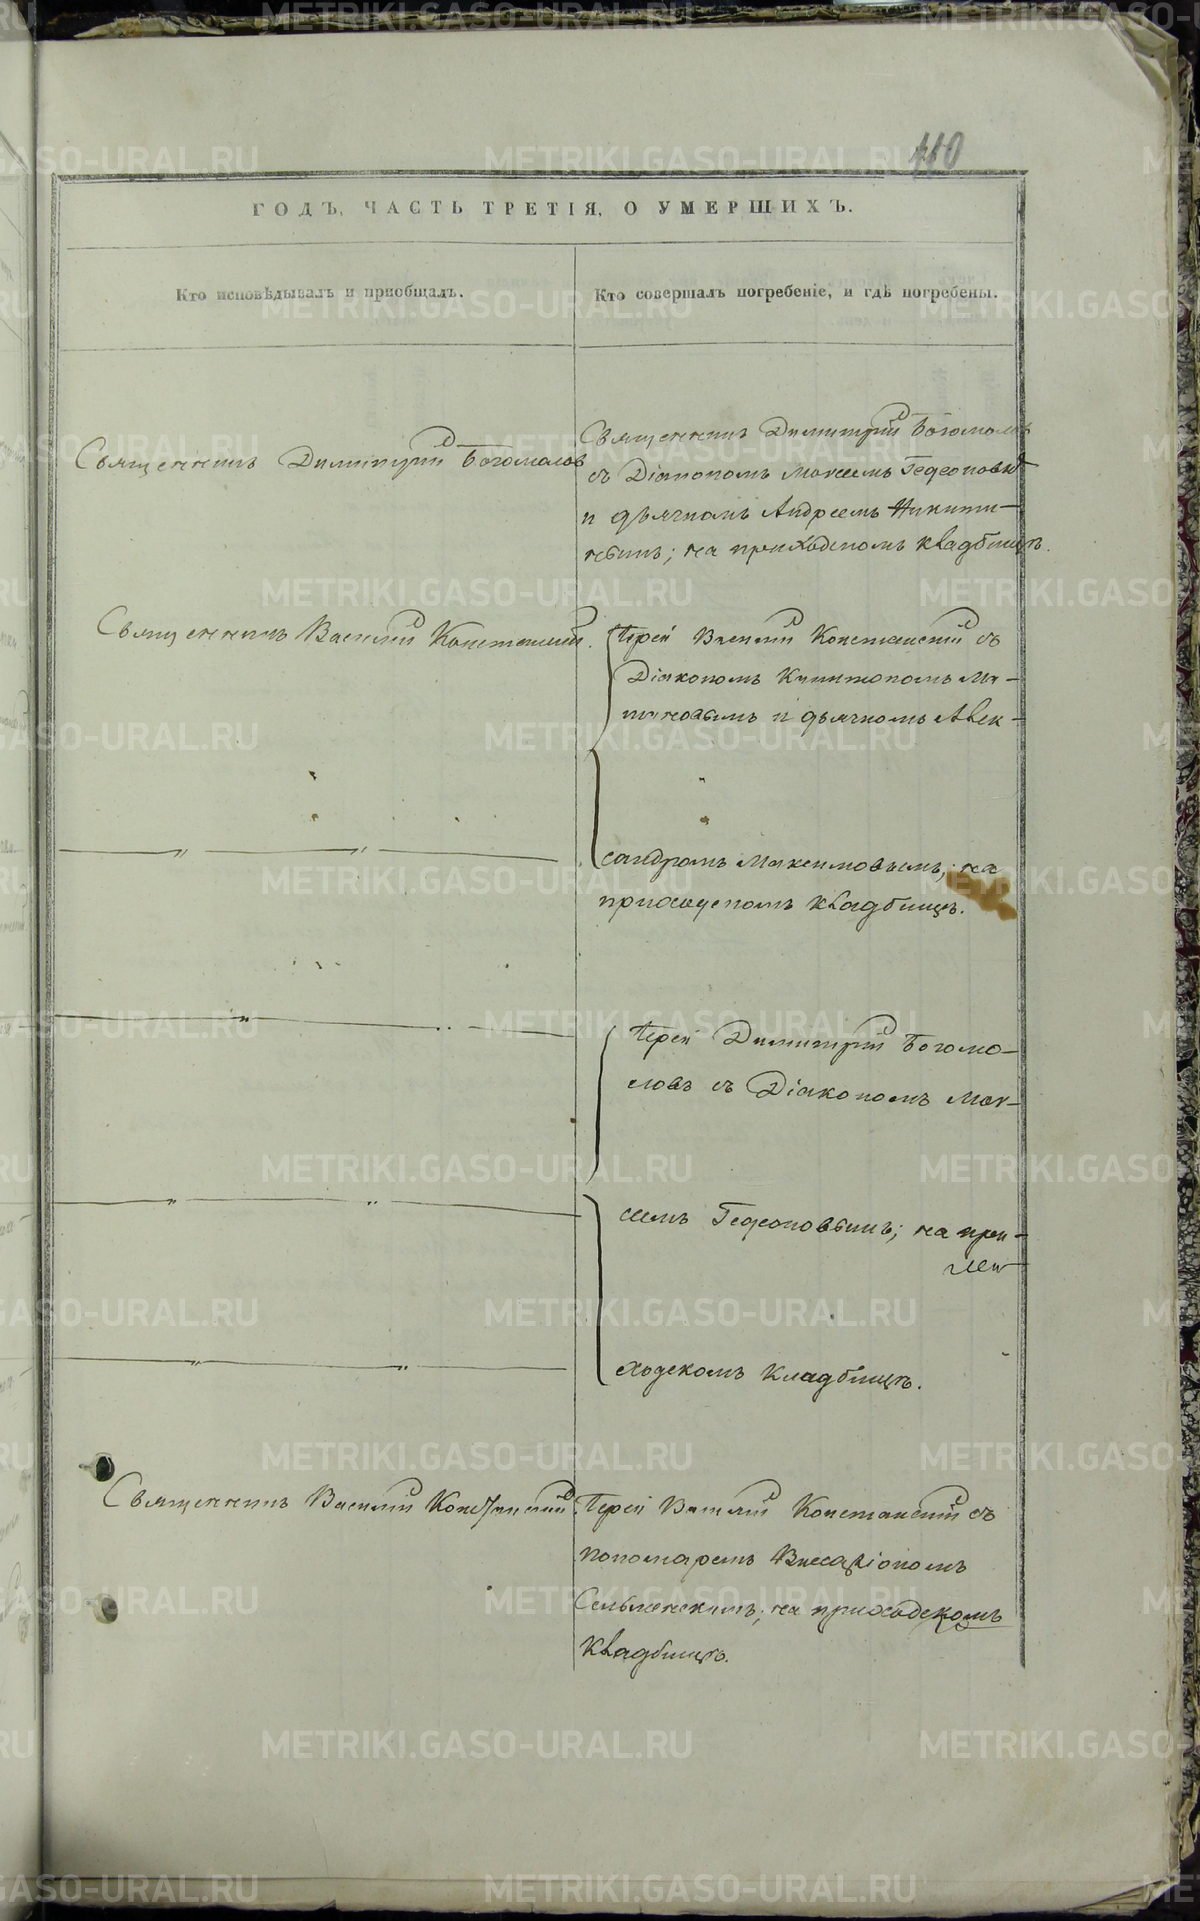 110
ГОДЪ, ЧАСТЬ ТРЕТІЯ, О УМЕРШИХЪ.
Кто исповѣдывалъ и пріобщалъ.
Кто совершалъ погребеніе, и гдѣ погребены.
Священникъ Димитрій Богомолов
Священникъ Димитрій Богомолов
съ Діакономъ Моѵсеемъ Гедеоновы
и дьячкомъ Андреемъ Никити-
нымъ; на приходскомъ кладбищѣ.
Священникъ Василій Констанскій.
Іерей Василій Констанскій съ
Діакономъ Капитономъ Ма-
и дьячкомъ Алек-
сандромъ Максимовымъ; на
приходскомъ кладбищѣ.
Іерей Димитрій Богомо-
ловъ съ Діакономъ Моѵ-
сеемъ Гедеоновымъ; на при-
ходскомъ кладбищѣ.
Священникъ Василій Констанскій
Іерей Василій Констанскій съ
пономаремъ Виссаріономъ
на приходскомъ
кладбищѣ.
METRIKI.GASO-URAL.RU